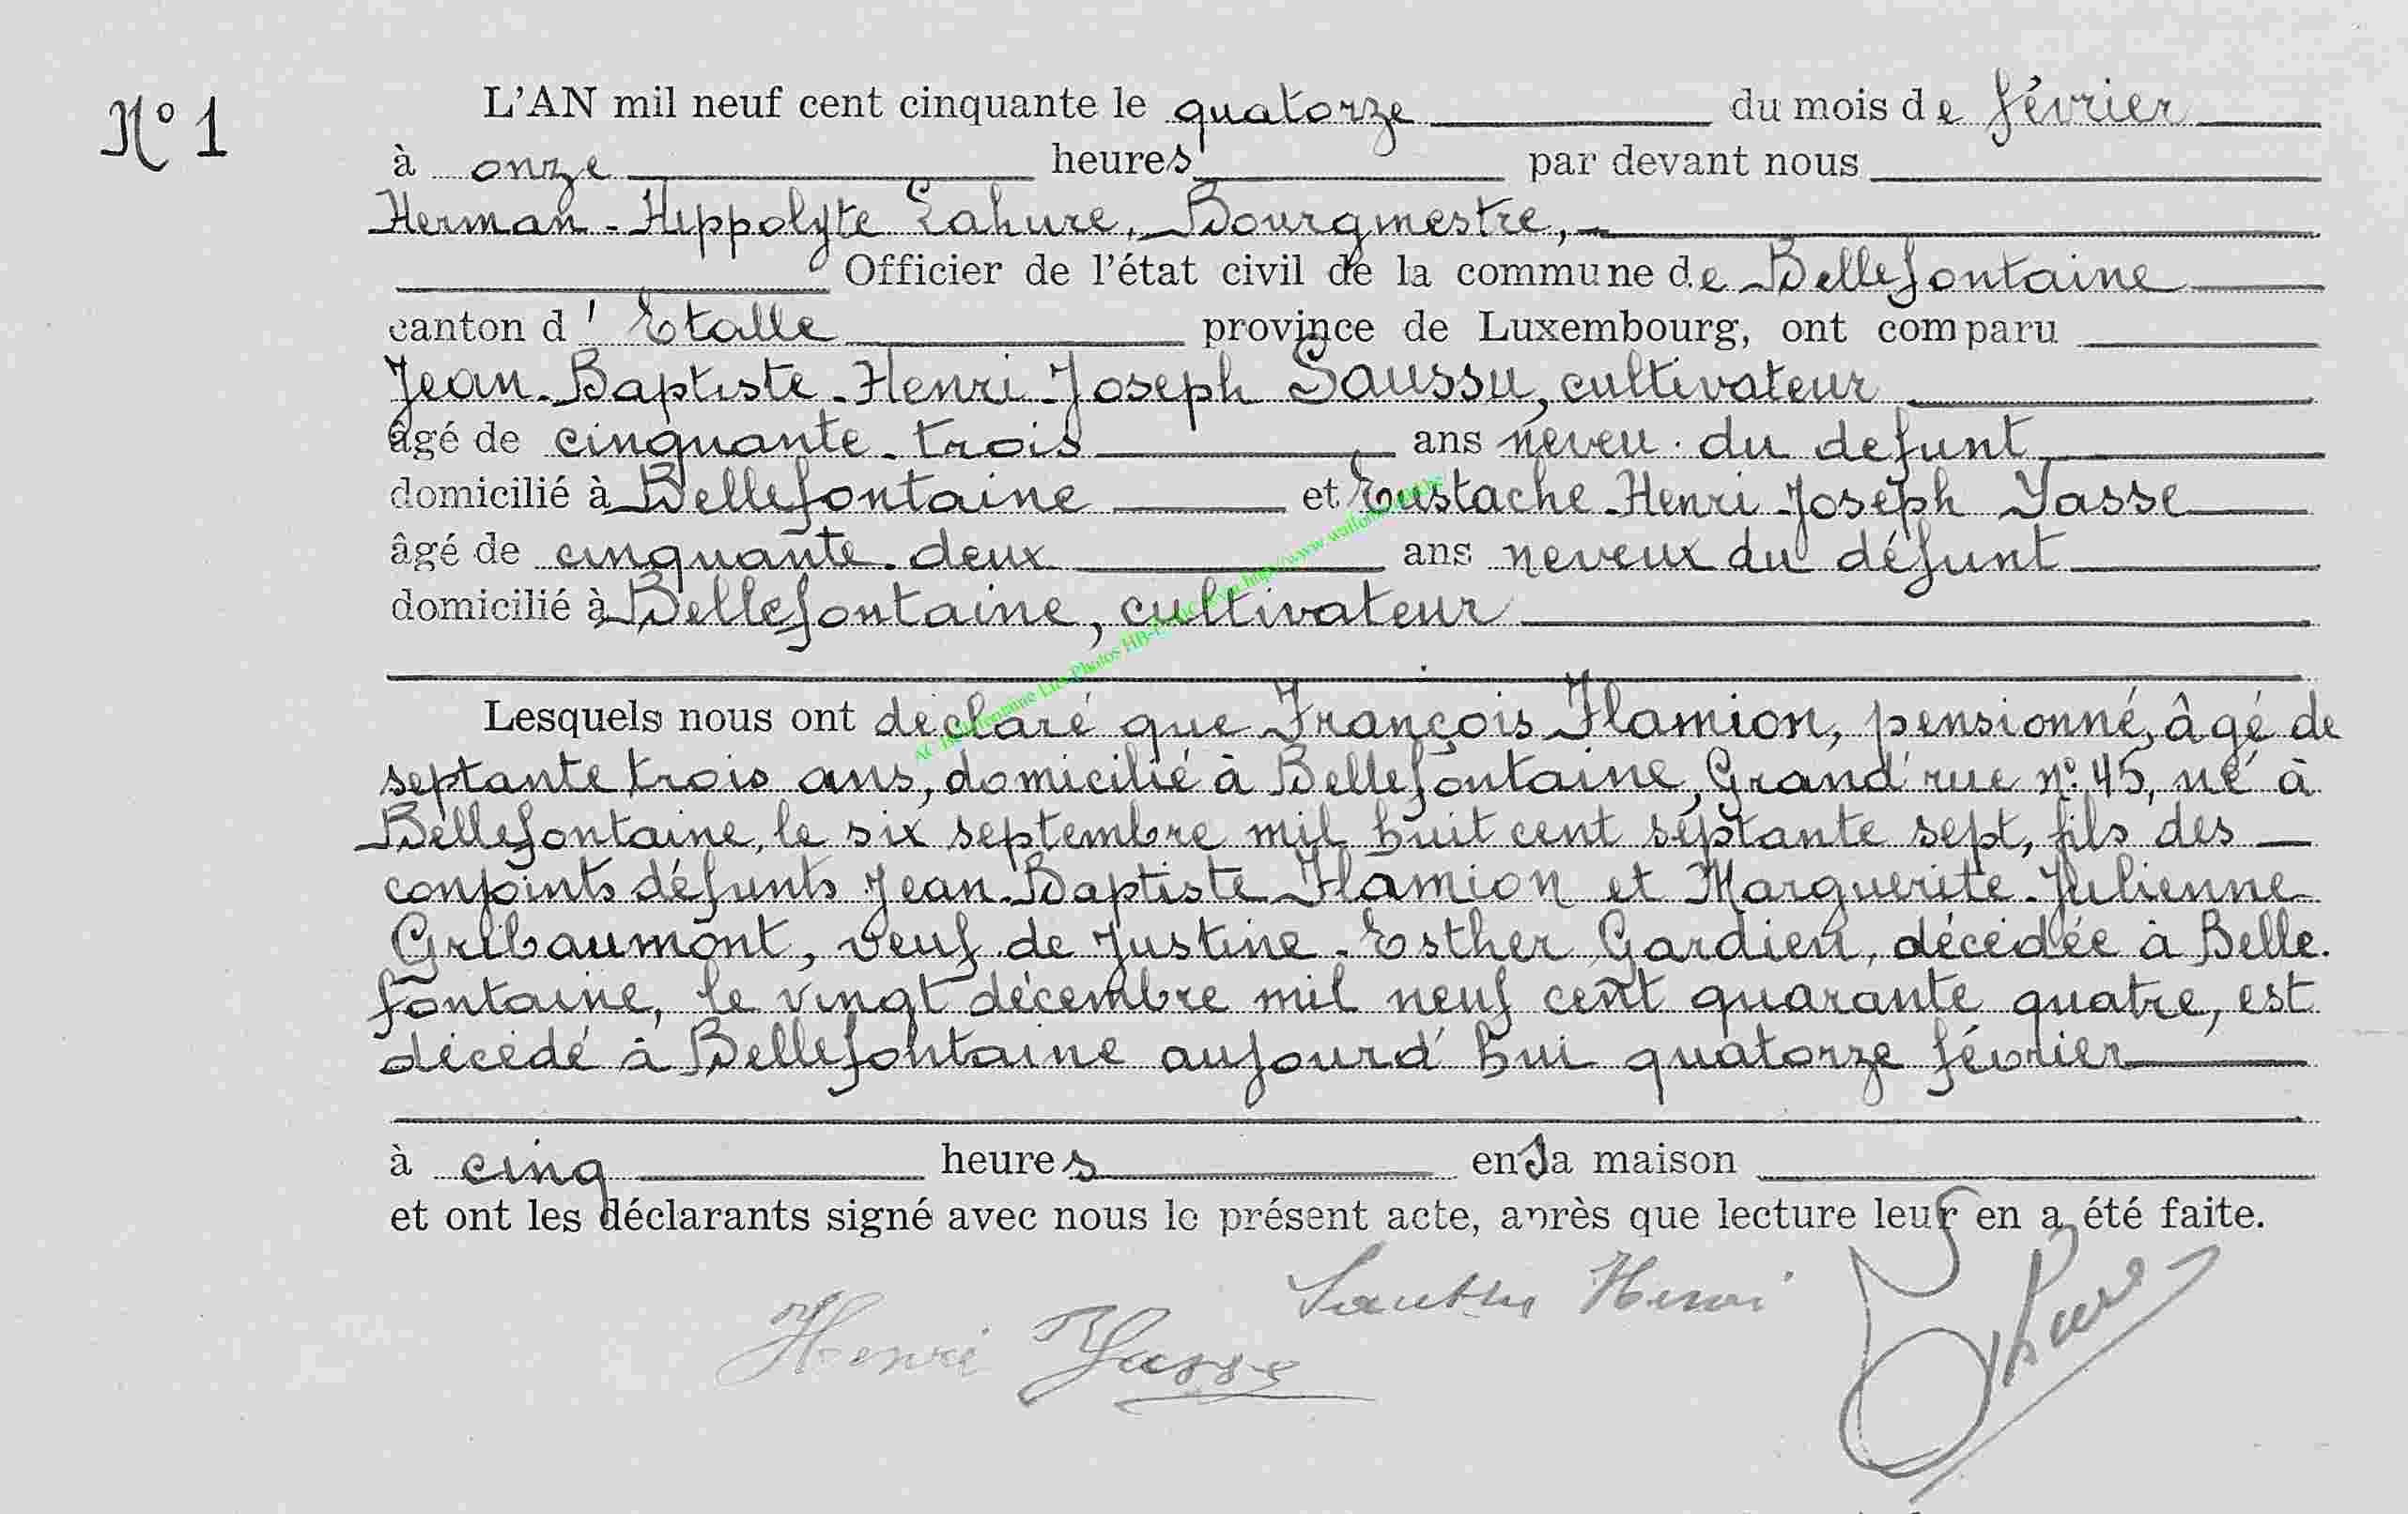 N° 1
L'AN mil neuf cent cinquante le quatorze du mois de février
à onze heures par devant nous
Herman-Hippolyte Lahure, Bourgmestre,
Officier de l'état civil de la commune de Bellefontaine
canton d'Etalle province de Luxembourg, ont comparu
Jean-Baptiste-Henri-Joseph Saussu, cultivateur
âgé de cinquante-trois ans neveu du defunt
domicilié à Bellefontaine et Eustache-Henri-Joseph Yasse
âgé de cinquante-deux ans neveux du défunt
domicilié à Bellefontaine, cultivateur
Lesquels nous ont declaré que François Flamion, pensionné, âgé de
septante trois ans, domicilié à Bellefontaine, Grand'rue n° 45, né à
Bellefontaine, le six septembre mil huit cent septante sept, fils des
conjoints défunts Jean-Baptiste Flamion et Marguerite-Julienne
Gribaumont, veuf de Justine-Esther Gardien, décédée à Belle-
fontaine, le vingt décembre mil neuf cent quarante quatre, est
décédé à Bellefontaine aujourd'hui quatorze février
à cinq heures en sa maison
et ont les déclarants signé avec nous le présent acte, après que lecture leur en a été faite.
Henri
Henri Yasse